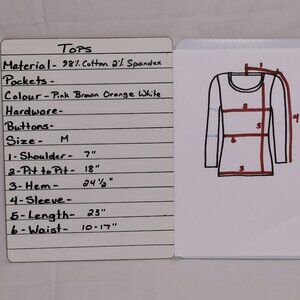 Tops
Material- 98% Cotton 2% Spandex
Pockets-
Colour- Pink Brown Orange White
Hardware-
Buttons-
Size- M
1-Shoulder- 7"
2-Pit to Pit- 18"
3-Hem- 24 1/2"
4-Sleeve-
5-Length- 23"
6-Waist- 10-17"
1
2
5
4
6
3